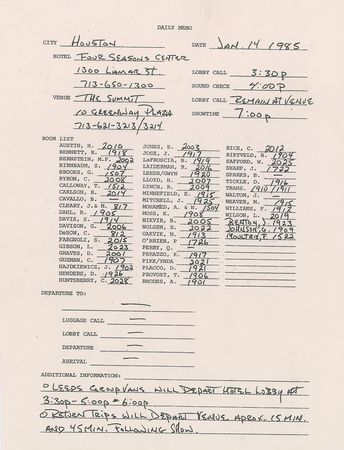 DAILY MEMO
CITY Houston DATE JAN. 14 1985
HOTEL FOUR SEASONS CENTER
1300 LAMAR ST. LOBBY CALL 3:30p
713-650-1300 SOUND CHECK 4:00p
VENUE THE SUMMIT LOBBY CALL REMAIN AT VENUE
10 GREENWAY PLAZA SHOWTIME 7:00p
713-621-3213/3214
ROOM LIST
AUSTIN, H. 2010 JONES, E. 2003 RICE, C. 2012
BENNETT, R. 1918 JOSE, J. 1917 RIETVELD, B. 1904
BERNSTEIN, M.F. 2002 LAFROSCIA, H. 1919 SAFFORD, W. 2025
BIRNBAUM, S. 1904 LATERMAN, R. 2016 SHARP, J. 1722
BROOKS, G. 1507 LEEDS/GWYN 1920 SPARKS, W. —
BYRON, C. 2008 LLOYD, H. 2007 TICKLE, D. 1916
CALLOWAY, T. 1512 LYNCH, M. 2009 TRANS. 1910/1911
CARLSON, R. 2014 MINNEFIELD, E. 1915 WALTON, J.
CAVALLO, B. MITCHELL, J. 1925 WEAVER, M. 1915
CLEARY, J. & M. 817 MOHAMED, A. & N. 1504 WILLIAMS, P. 1912
DAHL, B. 1905 MOSS, K. 1908 WILSON, L. 2019
DAVIS, S. 1914 NIEVES, B. 2005 BENTON, J. 1923
DAVISON, G. 2006 NOLSEN, B. 2022 JOHNSON, G. 1909
DeSON, C. 812 OAKVIK, M. 1913 MOULTRY, P. 1522
FARGNOLI, S. 2015 O'BRIEN, P. 1726
GIBSON, L. 2023 PERRY, Q. —
GRAVES, D. 2001 PERAZZO, K. 1917
GUZMAN, C. 1907 PIKE/YNDA 2021
HAJKIEWICZ, J. 1902 PLACCO, D. 1921
HENDERS, D. 1926 PROVOST, T. 1906
HUNTSBERRY, C. 2028 RHODES, A. 1901
DEPARTURE TO: —
LUGGAGE CALL —
LOBBY CALL —
DEPARTURE —
ARRIVAL —
ADDITIONAL INFORMATION:
O LEEDS GROUP VANS WILL DEPART HOTEL LOBBY AT
3:30p - 5:00p & 6:00p
O RETURN TRIPS WILL DEPART VENUE APROX. 15 MIN.
AND 45 MIN. FOLLOWING SHOW.